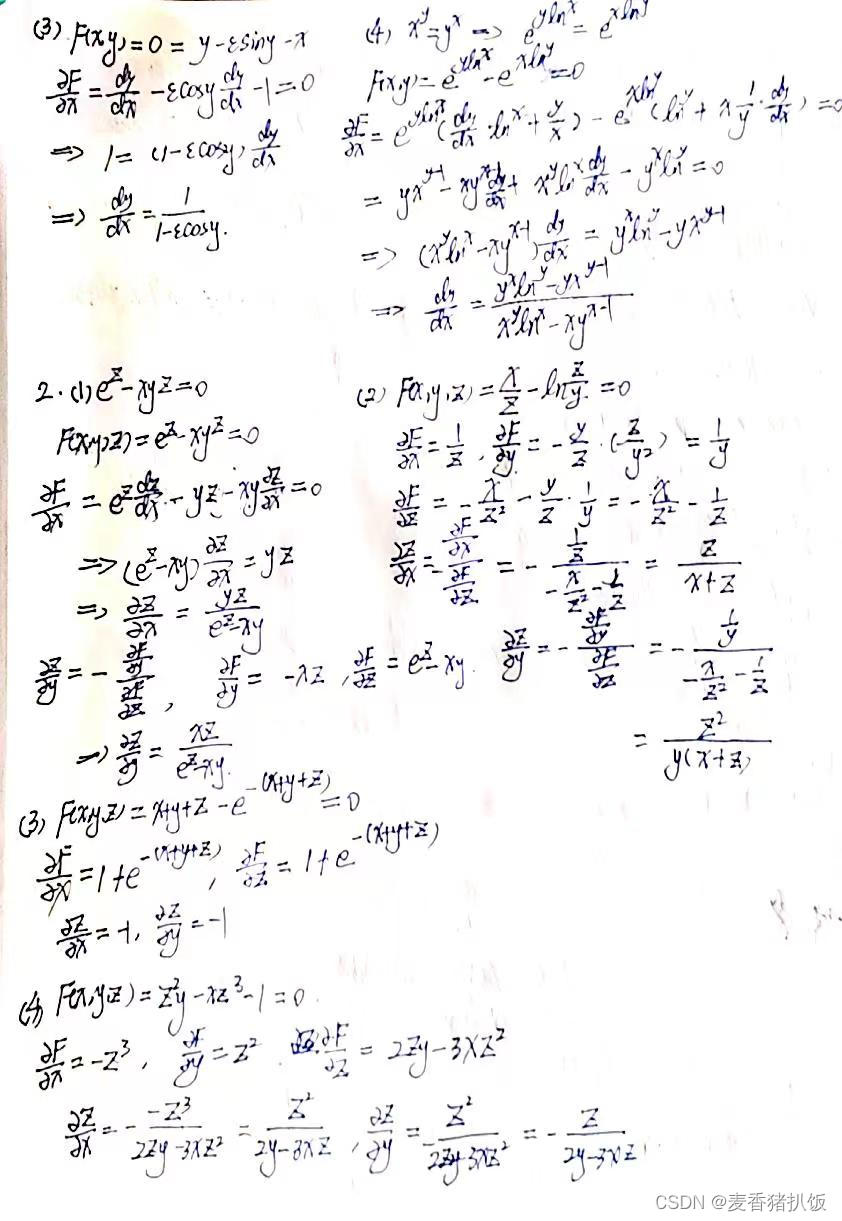 (3) F(x,y)=0=y-εsiny-x
∂F/∂x=dy/dx-εcosy dy/dx-1=0
=> 1=(1-εcosy)dy/dx
=> dy/dx=1/(1-εcosy).
(4) x^y=y^x => e^(ylnx)=e^(xlny)
F(x,y)=e^(ylnx)-e^(xlny)=0
∂F/∂x=e^(ylnx)(dy/dx·lnx+y/x)-e^(xlny)(lny+x 1/y·dy/dx)=0
=yx^(y-1)-xy^(x-1)dy/dx+x^y lnx dy/dx-y^x lny=0
=> (x^y lnx-xy^(x-1))dy/dx=y^x lny-yx^(y-1)
=> dy/dx=(y^x lny-yx^(y-1))/(x^y lnx-xy^(x-1))
2.(1) e^z-xyz=0
F(x,y,z)=e^z-xyz=0
∂F/∂x=e^z dz/dx-yz-xy ∂z/∂x=0
=> (e^z-xy)∂z/∂x=yz
=> ∂z/∂x=yz/(e^z-xy)
∂z/∂y=-(∂F/∂y)/(∂F/∂z), ∂F/∂y=-xz, ∂F/∂z=e^z-xy.
=> ∂z/∂y=xz/(e^z-xy).
(2) F(x,y,z)=x/z-ln z/y=0
∂F/∂x=1/z, ∂F/∂y=-y/z·(-z/y²)=1/y
∂F/∂z=-x/z²-y/z·1/y=-x/z²-1/z
∂z/∂x=-(∂F/∂x)/(∂F/∂z)=-(1/z)/(-x/z²-1/z)=z/(x+z)
∂z/∂y=-(∂F/∂y)/(∂F/∂z)=-(1/y)/(-x/z²-1/z)
=z²/(y(x+z))
(3) F(x,y,z)=x+y+z-e^(-(x+y+z))=0
∂F/∂x=1+e^(-(x+y+z)), ∂F/∂z=1+e^(-(x+y+z))
∂z/∂x=-1, ∂z/∂y=-1
(4) F(x,y,z)=z²y-xz³-1=0
∂F/∂x=-z³, ∂F/∂y=z² ∂F/∂z=2zy-3xz²
∂z/∂x=-(-z³)/(2zy-3xz²)=z²/(2y-3xz), ∂z/∂y=-z²/(2zy-3xz²)=-z/(2y-3xz)
CSDN @麦香猪扒饭